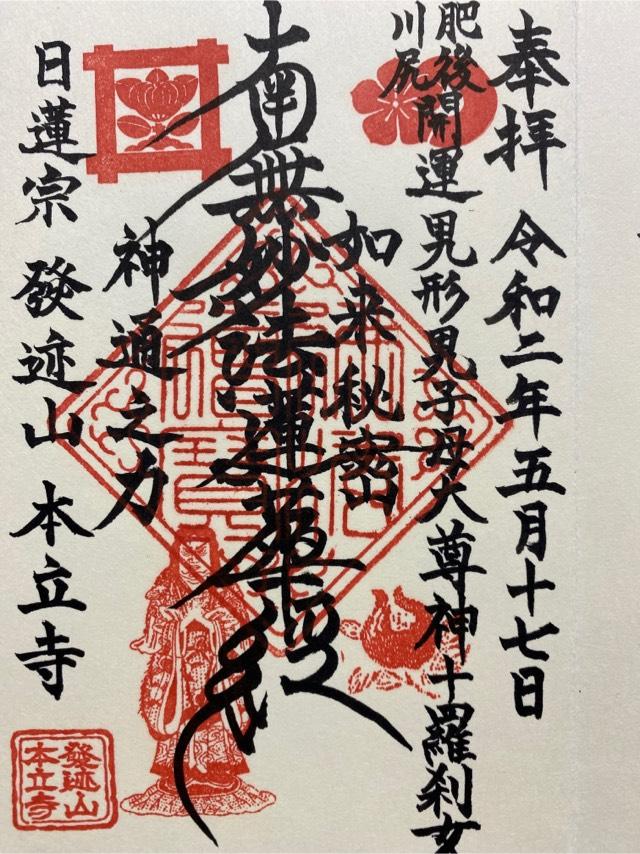 奉拝 令和二年五月十七日
肥後川尻
開運 鬼形鬼子母大尊神 十羅刹女
如来秘密
南無妙法蓮華経
神通之力
日蓮宗 發迹山 本立寺
發迹山
本立寺